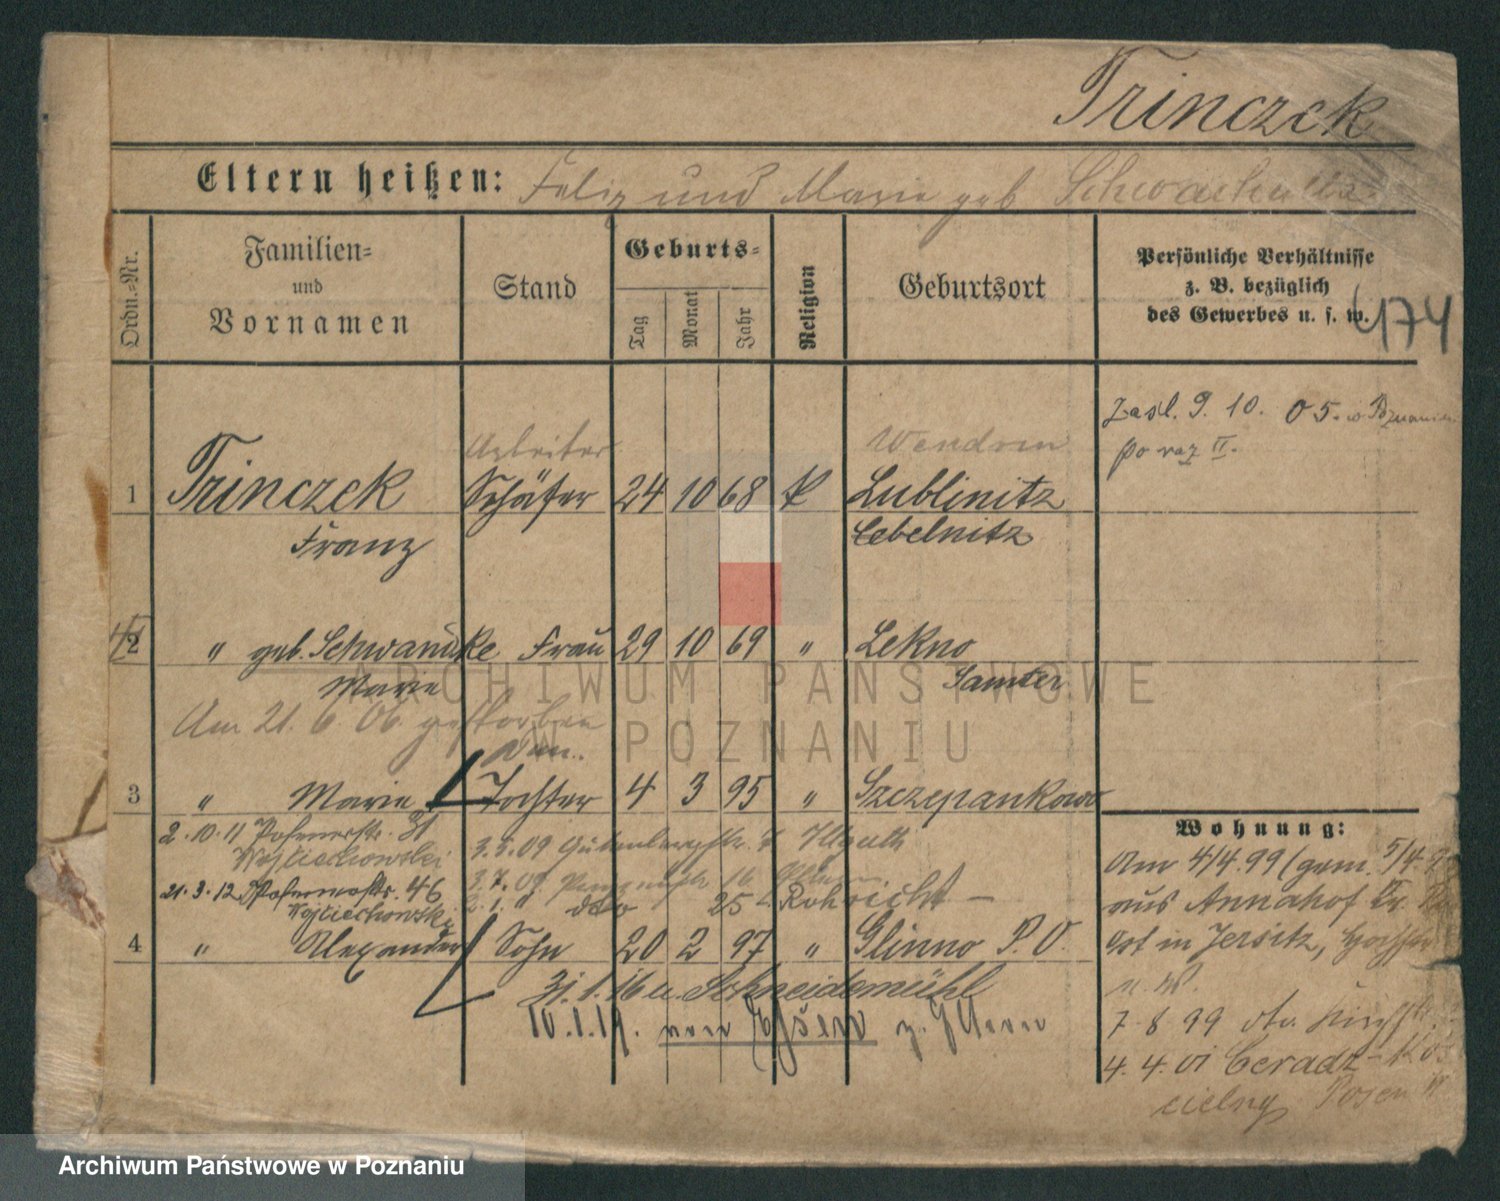 Trinczek
Eltern heißen: Felix und Marie geb
Ordn.-Nr.
Familien- und Vornamen
Stand
Geburts-
Tag
Monat
Jahr
Religion
Geburtsort
Persönliche Verhältnisse
z. B. bezüglich
des Gewerbes u. s. w.
174
Zasl. 9. 10. 05. w
po raz II.
Arbeiter
1 Trinczek Schäfer 24 10 68 k Lublinitz
Franz
2 " geb. Schwandke Frau 29 10 69 " Lekno
Marie Samter
Am 21. 6 06 gestorben
3 " Marie Tochter 4 3 95 " Szczepankowo
2. 10. 11 Posenerstr. 31
Wojciechowski
3. 5. 09 Gutenbergstr.
21. 3. 12 46
Wojciechowski
dto 25 Rohricht
4 " Alexander Sohn 20 2 97 " Glinno P. O.
31. 1. 16 u. Schneidemühl
10. 1. 17. von
Wohnung:
Am 4/4. 99 (gem. 5/4.
aus Annahof Kr.
Ost in Jersitz,
7 8 99 dto.
4. 4. 01 Ceradz-
cielny Posen W
ARCHIWUM PAŃSTWOWE
W POZNANIU
Archiwum Państwowe w Poznaniu